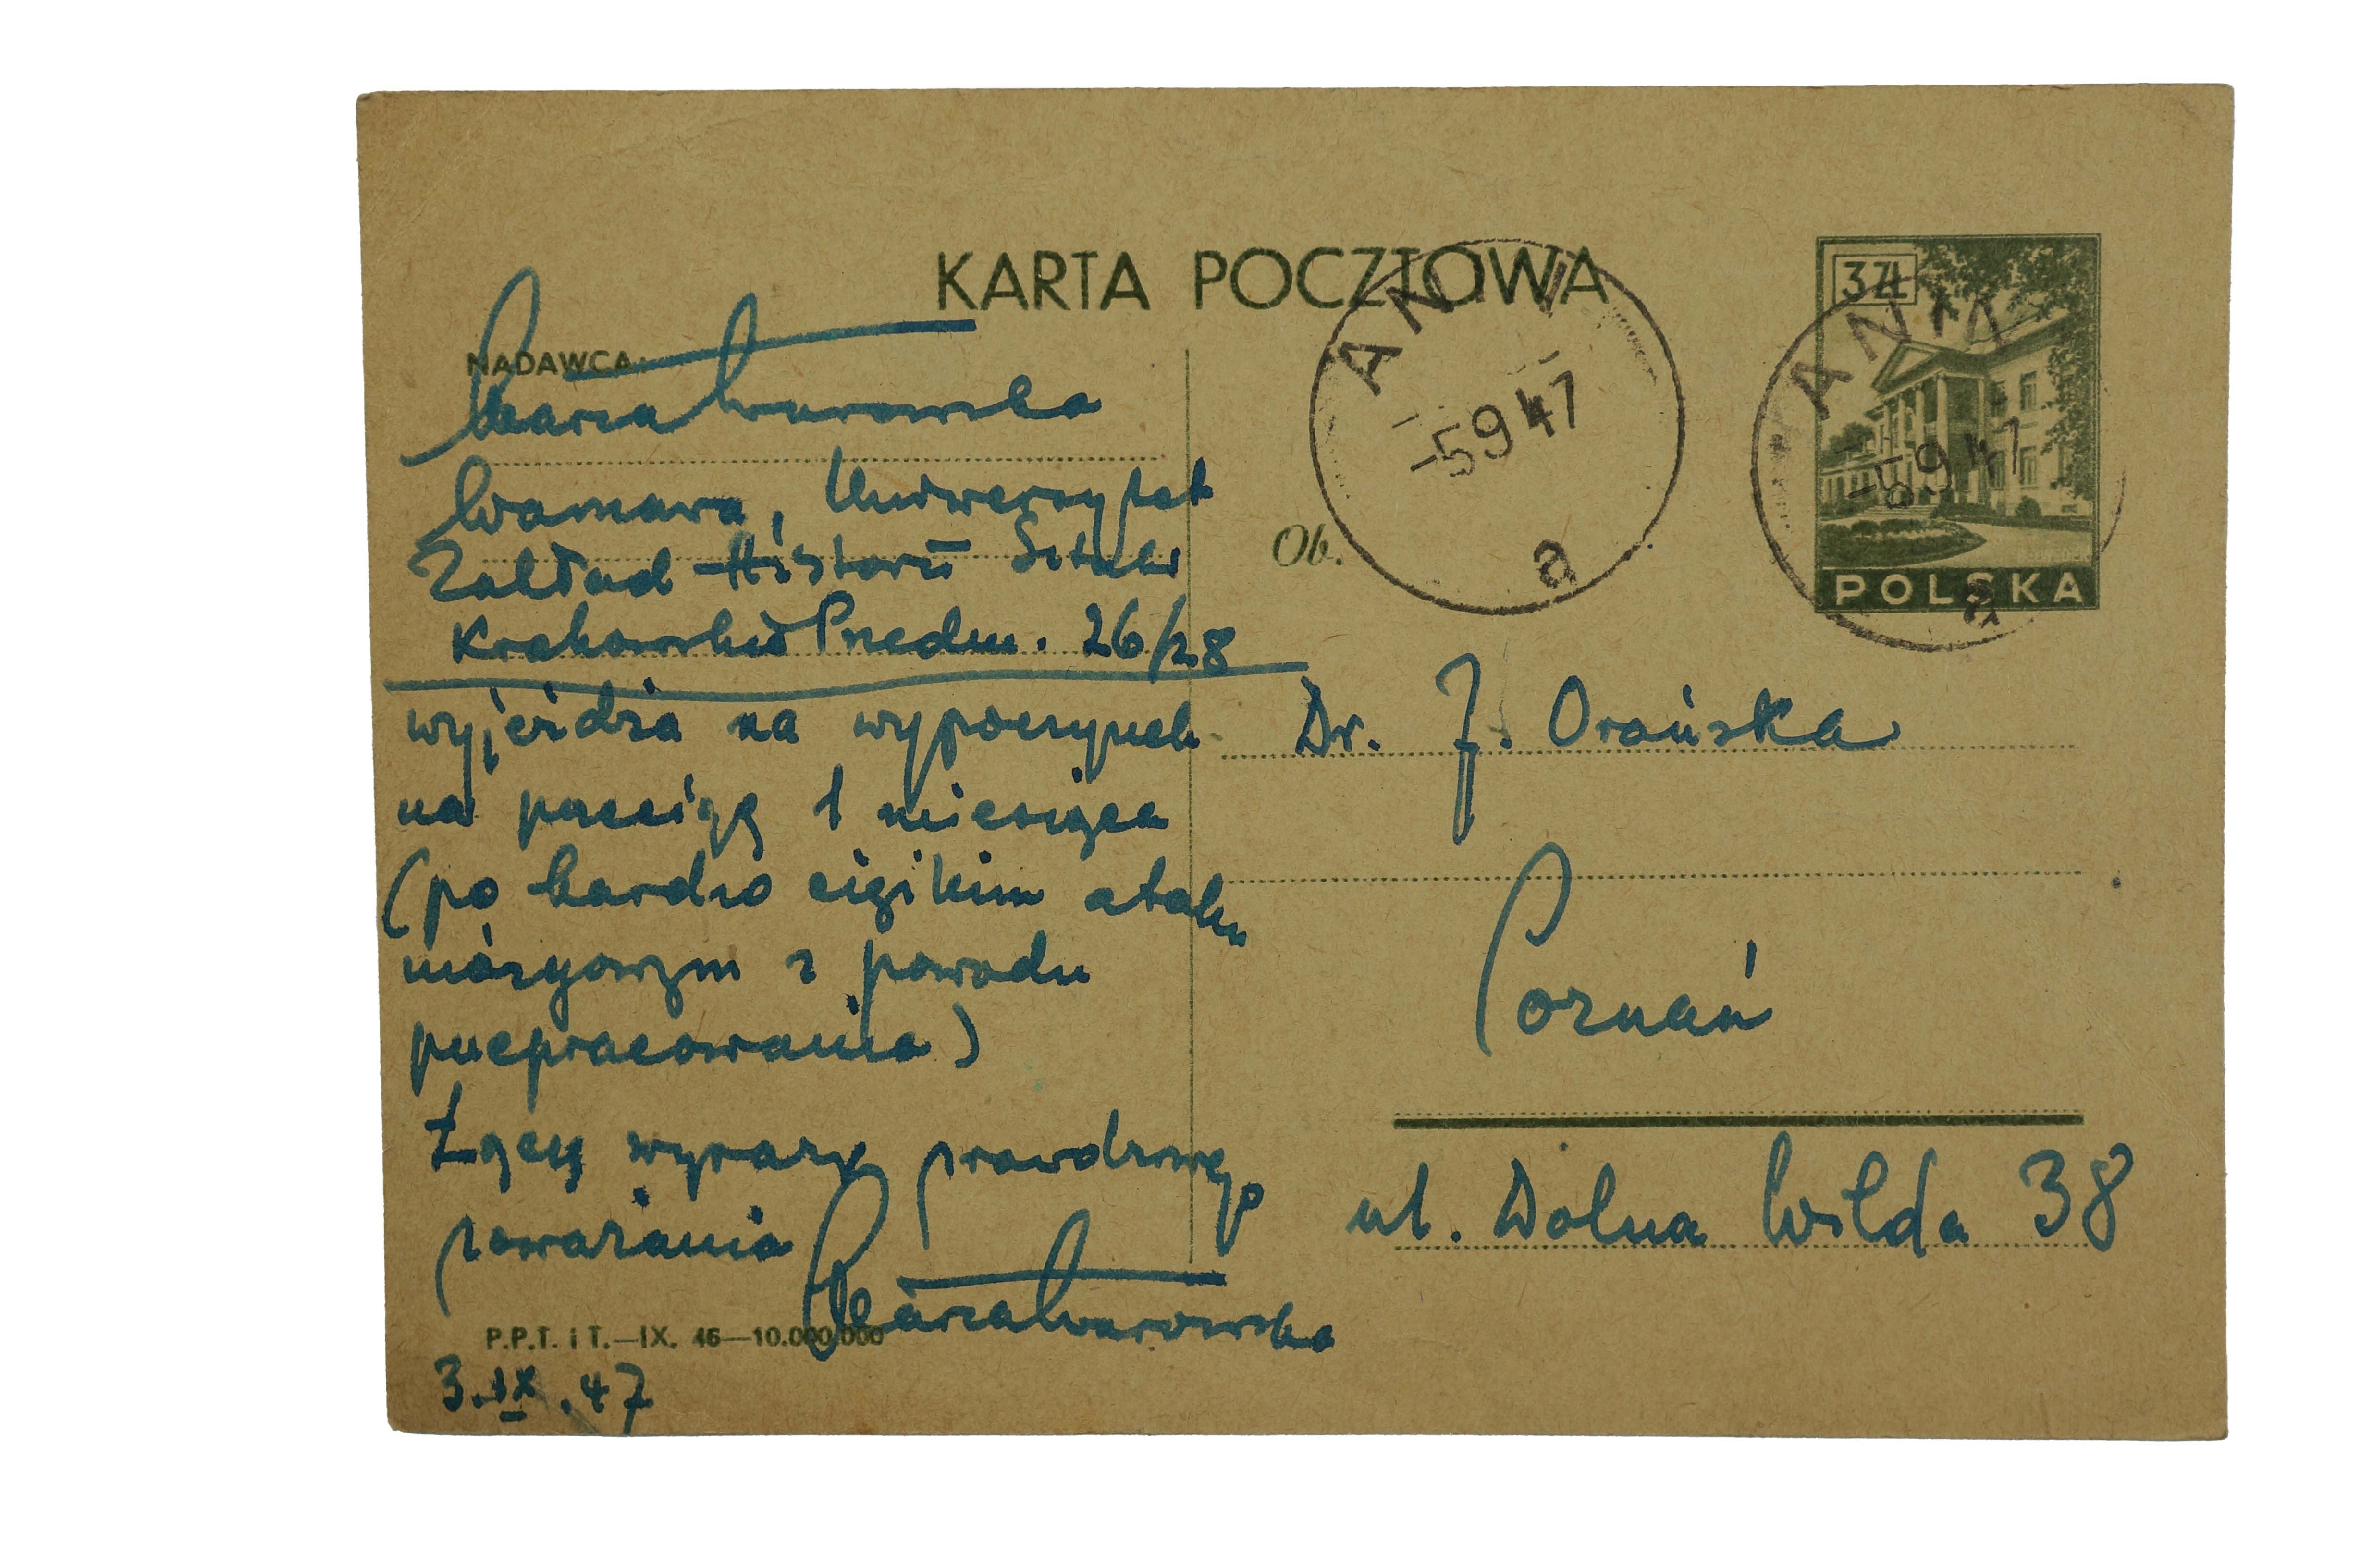 KARTA POCZTOWA
3 ZŁ
POLSKA
AN
-5 9 47
a
ANIN
-5 9 47
a
NADAWCA:
Maria
Warszawa, Uniwersytet
Zakład Historii Sztuki
Krakowskie Przedm. 26/28
wyjeżdża na wypoczynek
na przeciąg 1 miesiąca
(po bardzo ciężkim ataku
mózgowym z powodu
przepracowania)
Łączę wyrazy prawdziwego
poważania
Maria
P.P.T. i T.—IX. 46—10.000.000
3.IX.47
Ob.
Dr. J. Orańska
Poznań
ul. Dolna Wilda 38